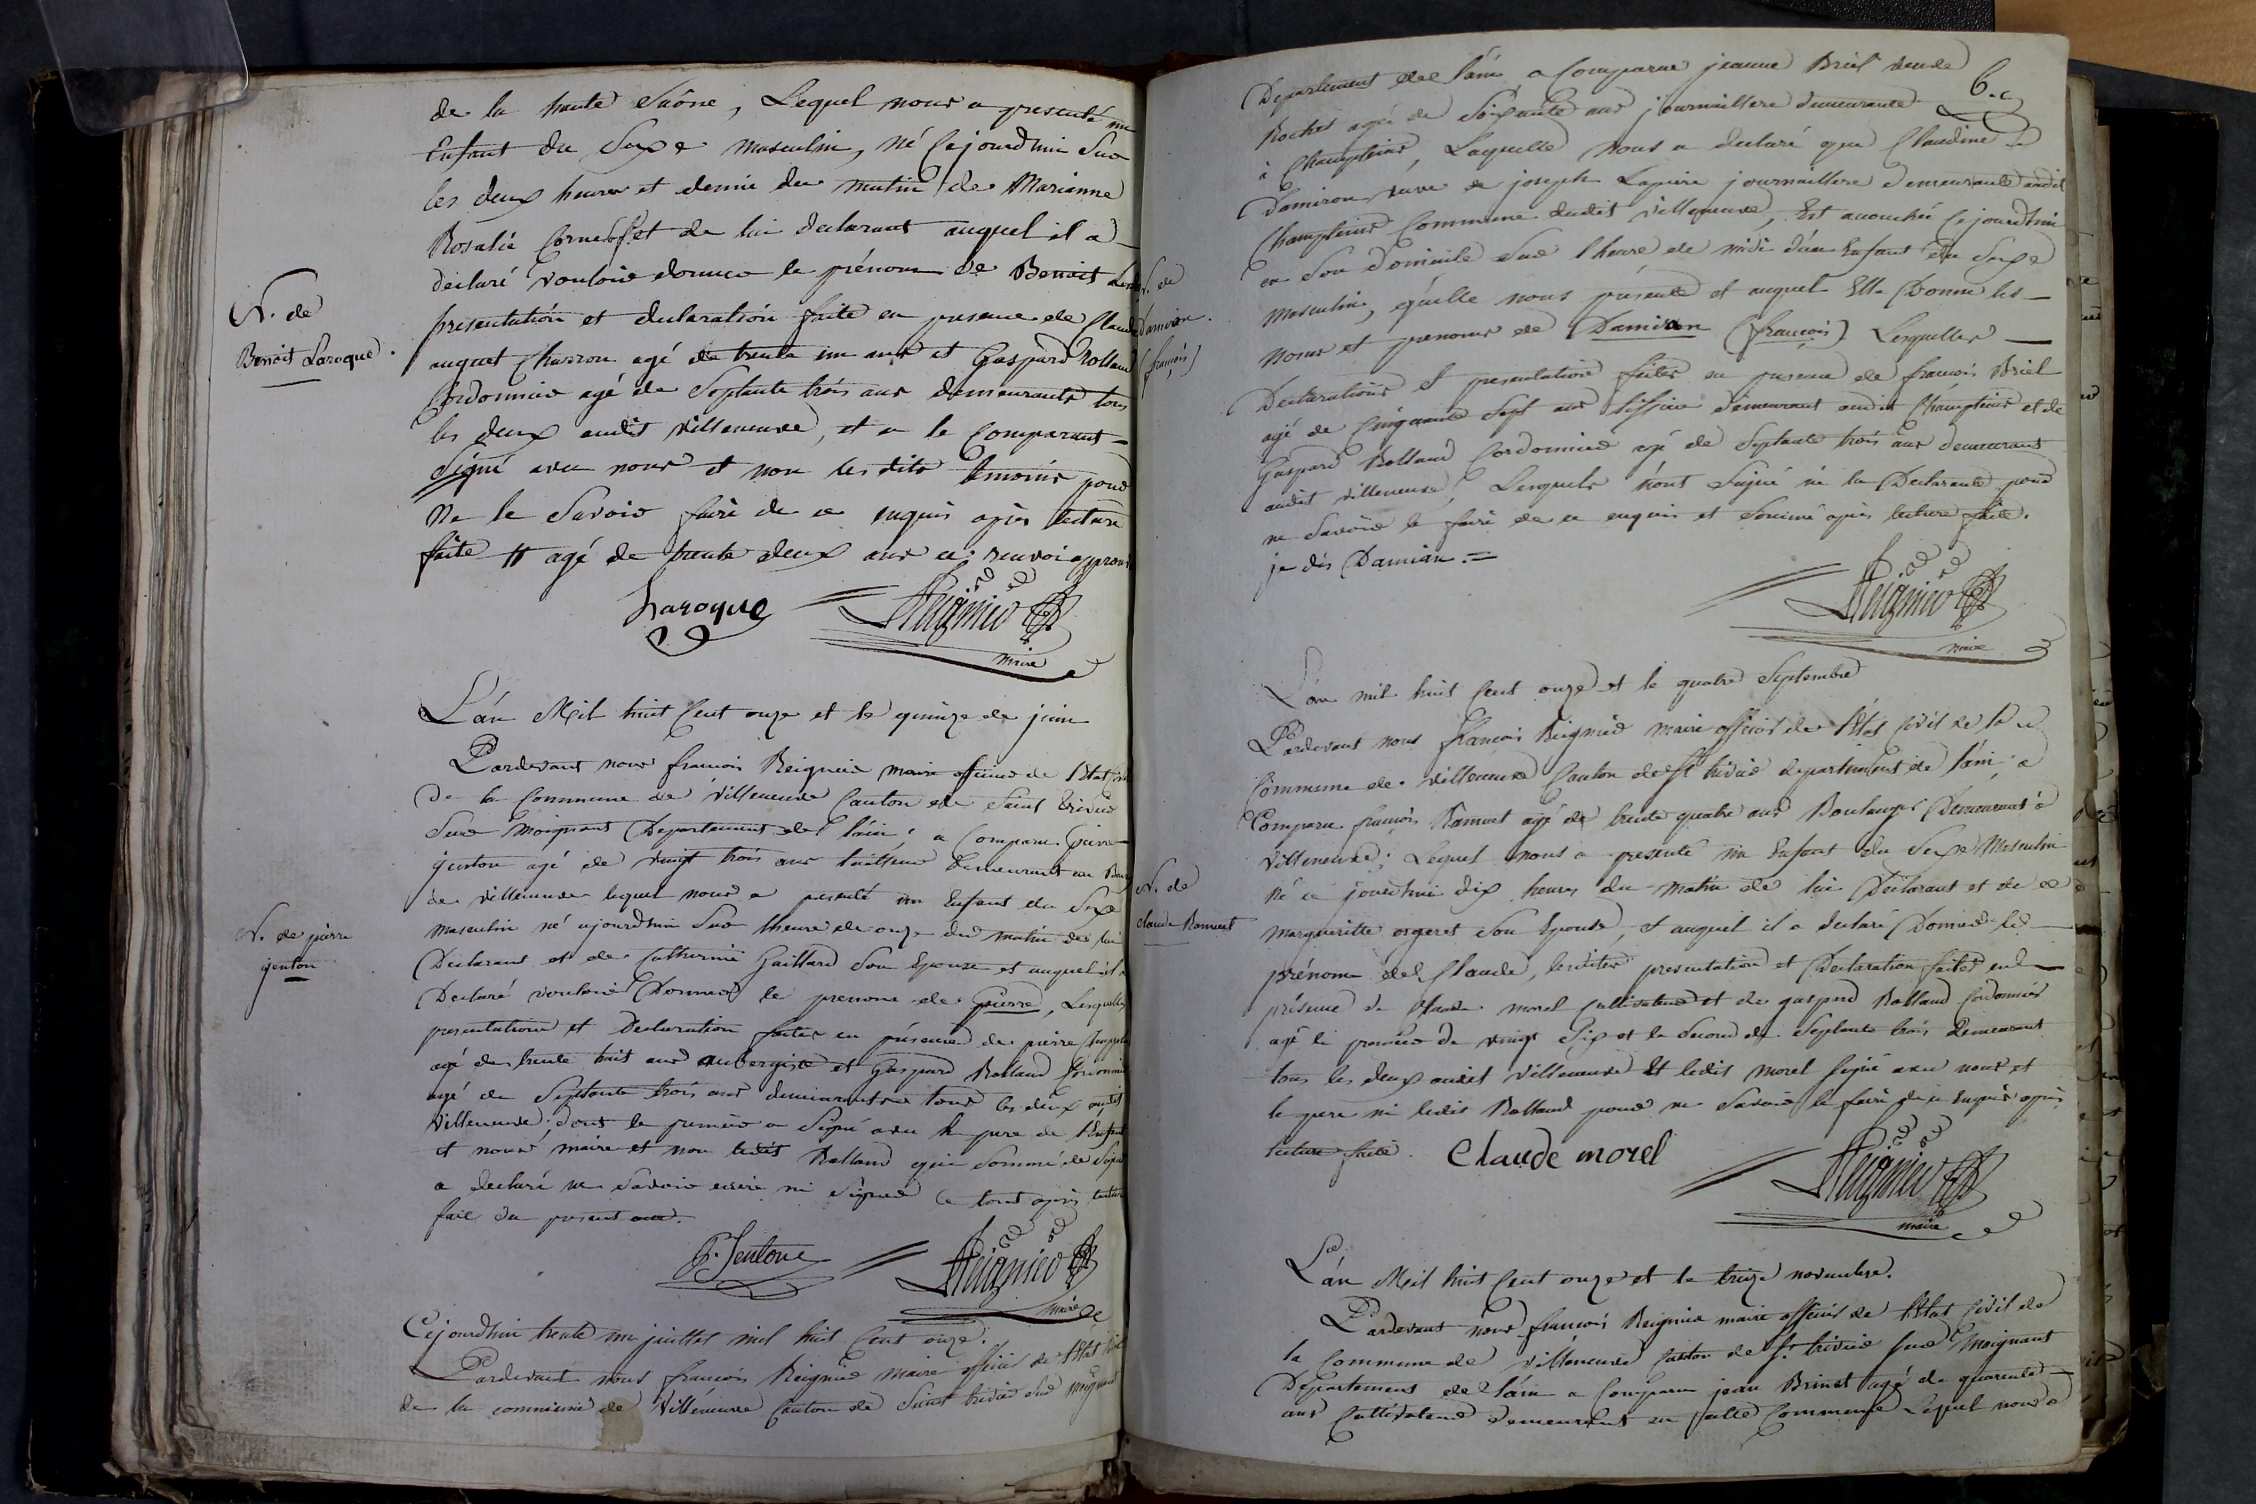 de la haute Saône, Lequel nous a presenté un
Enfant du Sexe masculin, né Cejourdhui Sur
les deux heures et demie du matin de Marianne
Rosalie et de lui declarant auquel il a
déclaré vouloir donner le prénom de Benoit
N. de
Benoit Laroque.
presentation et declaration faite en presence de Claude
auguet Charron agé de trente un ans et Gaspard Rolland
Cordonnier agé de Septante trois ans demeurants tous
les deux audit villeneuve, et a le Comparant
Signé avec nous et non lesdits temoins pour
Ne le Savoir faire de ce enquis après lecture
faite # agé de trente deux ans ce renvoi approuvé
Laroque Reignier
maire
L'án Mil huit Cent onze et le quinze de juin
Pardevant nous francois Reignier maire officier de l'Etat
de la Commune de Villeneuve Canton de Saint Trivier
Sur Moignans Departement de l'ain, a Comparu Pierre
jenton agé de vingt trois ans tailleur demeurant au
de villeneuve lequel nous a presenté un Enfant du Sexe
masculin né ajourdhui Sur lheure de onze du matin de lui
N. de pierre
jenton
Declarant et de Catherine Gaillard Son Epouse et auquel il a
Declaré vouloir Donner le prenom de Pierre, Lesquelles
presentation et Declaration faites en présence de pierre
agé de trente huit ans aubergiste et Gaspard Rolland Cordonnier
agé de Septante trois ans demeurants tous les deux audit
villeneuve; dont le premier a Signé avec le pere de l'Enfant
et nous maire et non ledit Rolland qui Sommé de Signer
a declaré ne Savoir ecrire ni Signer le tout après lecture
fait du present
P. Jenton Reignier
maire
Cejourdhui trente un juillet mil huit Cent onze.
Pardevant nous francois Reignier maire officier de l'Etat
de la commune de Villeneuve Canton de Saint trivier Sur Moignant
6.
Departement de l'ain a Comparue jeanne Briel veuve
Rochet agée de Soixante ans journaillere demeurante
à Champteins, Laquelle nous a declaré que Claudine
Damiron veuve de joseph Lapierre journaillere demeurante audit
Champteins Commune dudit villeneuve, Est accouchée Cejourdhui
en Son Domicile Sur l'heure de midi d'un Enfant du Sexe
N. de
Damiron.
(françois)
masculin, qu'elle nous presente et auquel Elle Donne les
Noms et prenoms de Damiron (françois) Lesquelles
Declarations et presentation faites en presence de francois Briel
agé de Cinquante Sept ans tissier demeurant audit Champteins et de
Gaspard Rolland Cordonnier agé de Septante trois ans demeurant
audit villeneuve, Lesquels n'ont Signé ni la Declarante pour
ne Savoir le faire de ce enquis et Sommé après lecture faite.
je dis Damiron. =
Reignier
maire
L'án mil huit Cent onze et le quatre Septembre
Pardevant nous francois Reignier maire officier de l'Etat Civil de la
Commune de villeneuve Canton de St trivier departement de l'ain, a
Comparu francois Ramuet agé de trente quatre ans Boulanger Demeurant à
Villeneuve; Lequel nous a presenté un Enfant du Sexe Masculin
né ce jourdhui dix heures du matin de lui Declarant et de
N. de
Claude Ramuet
Margueritte orgeret Son Epouse, et auquel il a declaré Donner le
prénom de Claude, lesdites presentation et Declaration faites en
présence de Claude morel Cultivateur et de gaspard Rolland Cordonnier
agé le premier de vingt Six et le Second de Septante trois demeurant
tous les deux audit villeneuve Et ledit morel Signé avec nous et
le pere ni ledit Rolland pour ne Savoir le faire de ce enquis après
lecture faite. Claude morel
Reignier
maire
L'án Mil huit Cent onze et le treize novembre.
Pardevant nous francois Reignier maire officier de l'Etat Civil de
la Commune de villeneuve Canton de St. trivier Sur Moignant
Departement de l'ain a Comparu jean Brinet agé de quarente
ans Cultivateur demeurant en cette Commune Lequel nous a